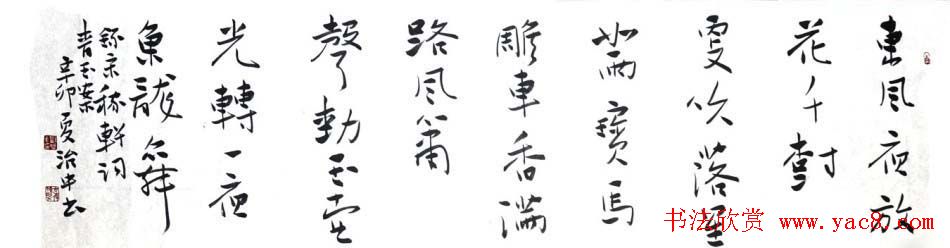 東風夜放
花千樹
更吹落星
如雨寶馬
雕車香滿
路風簫
聲動玉壺
光轉一夜
魚龍舞
錄宋稼軒詞
青玉案
辛卯夏治中书
书法欣赏 www.yac8.com